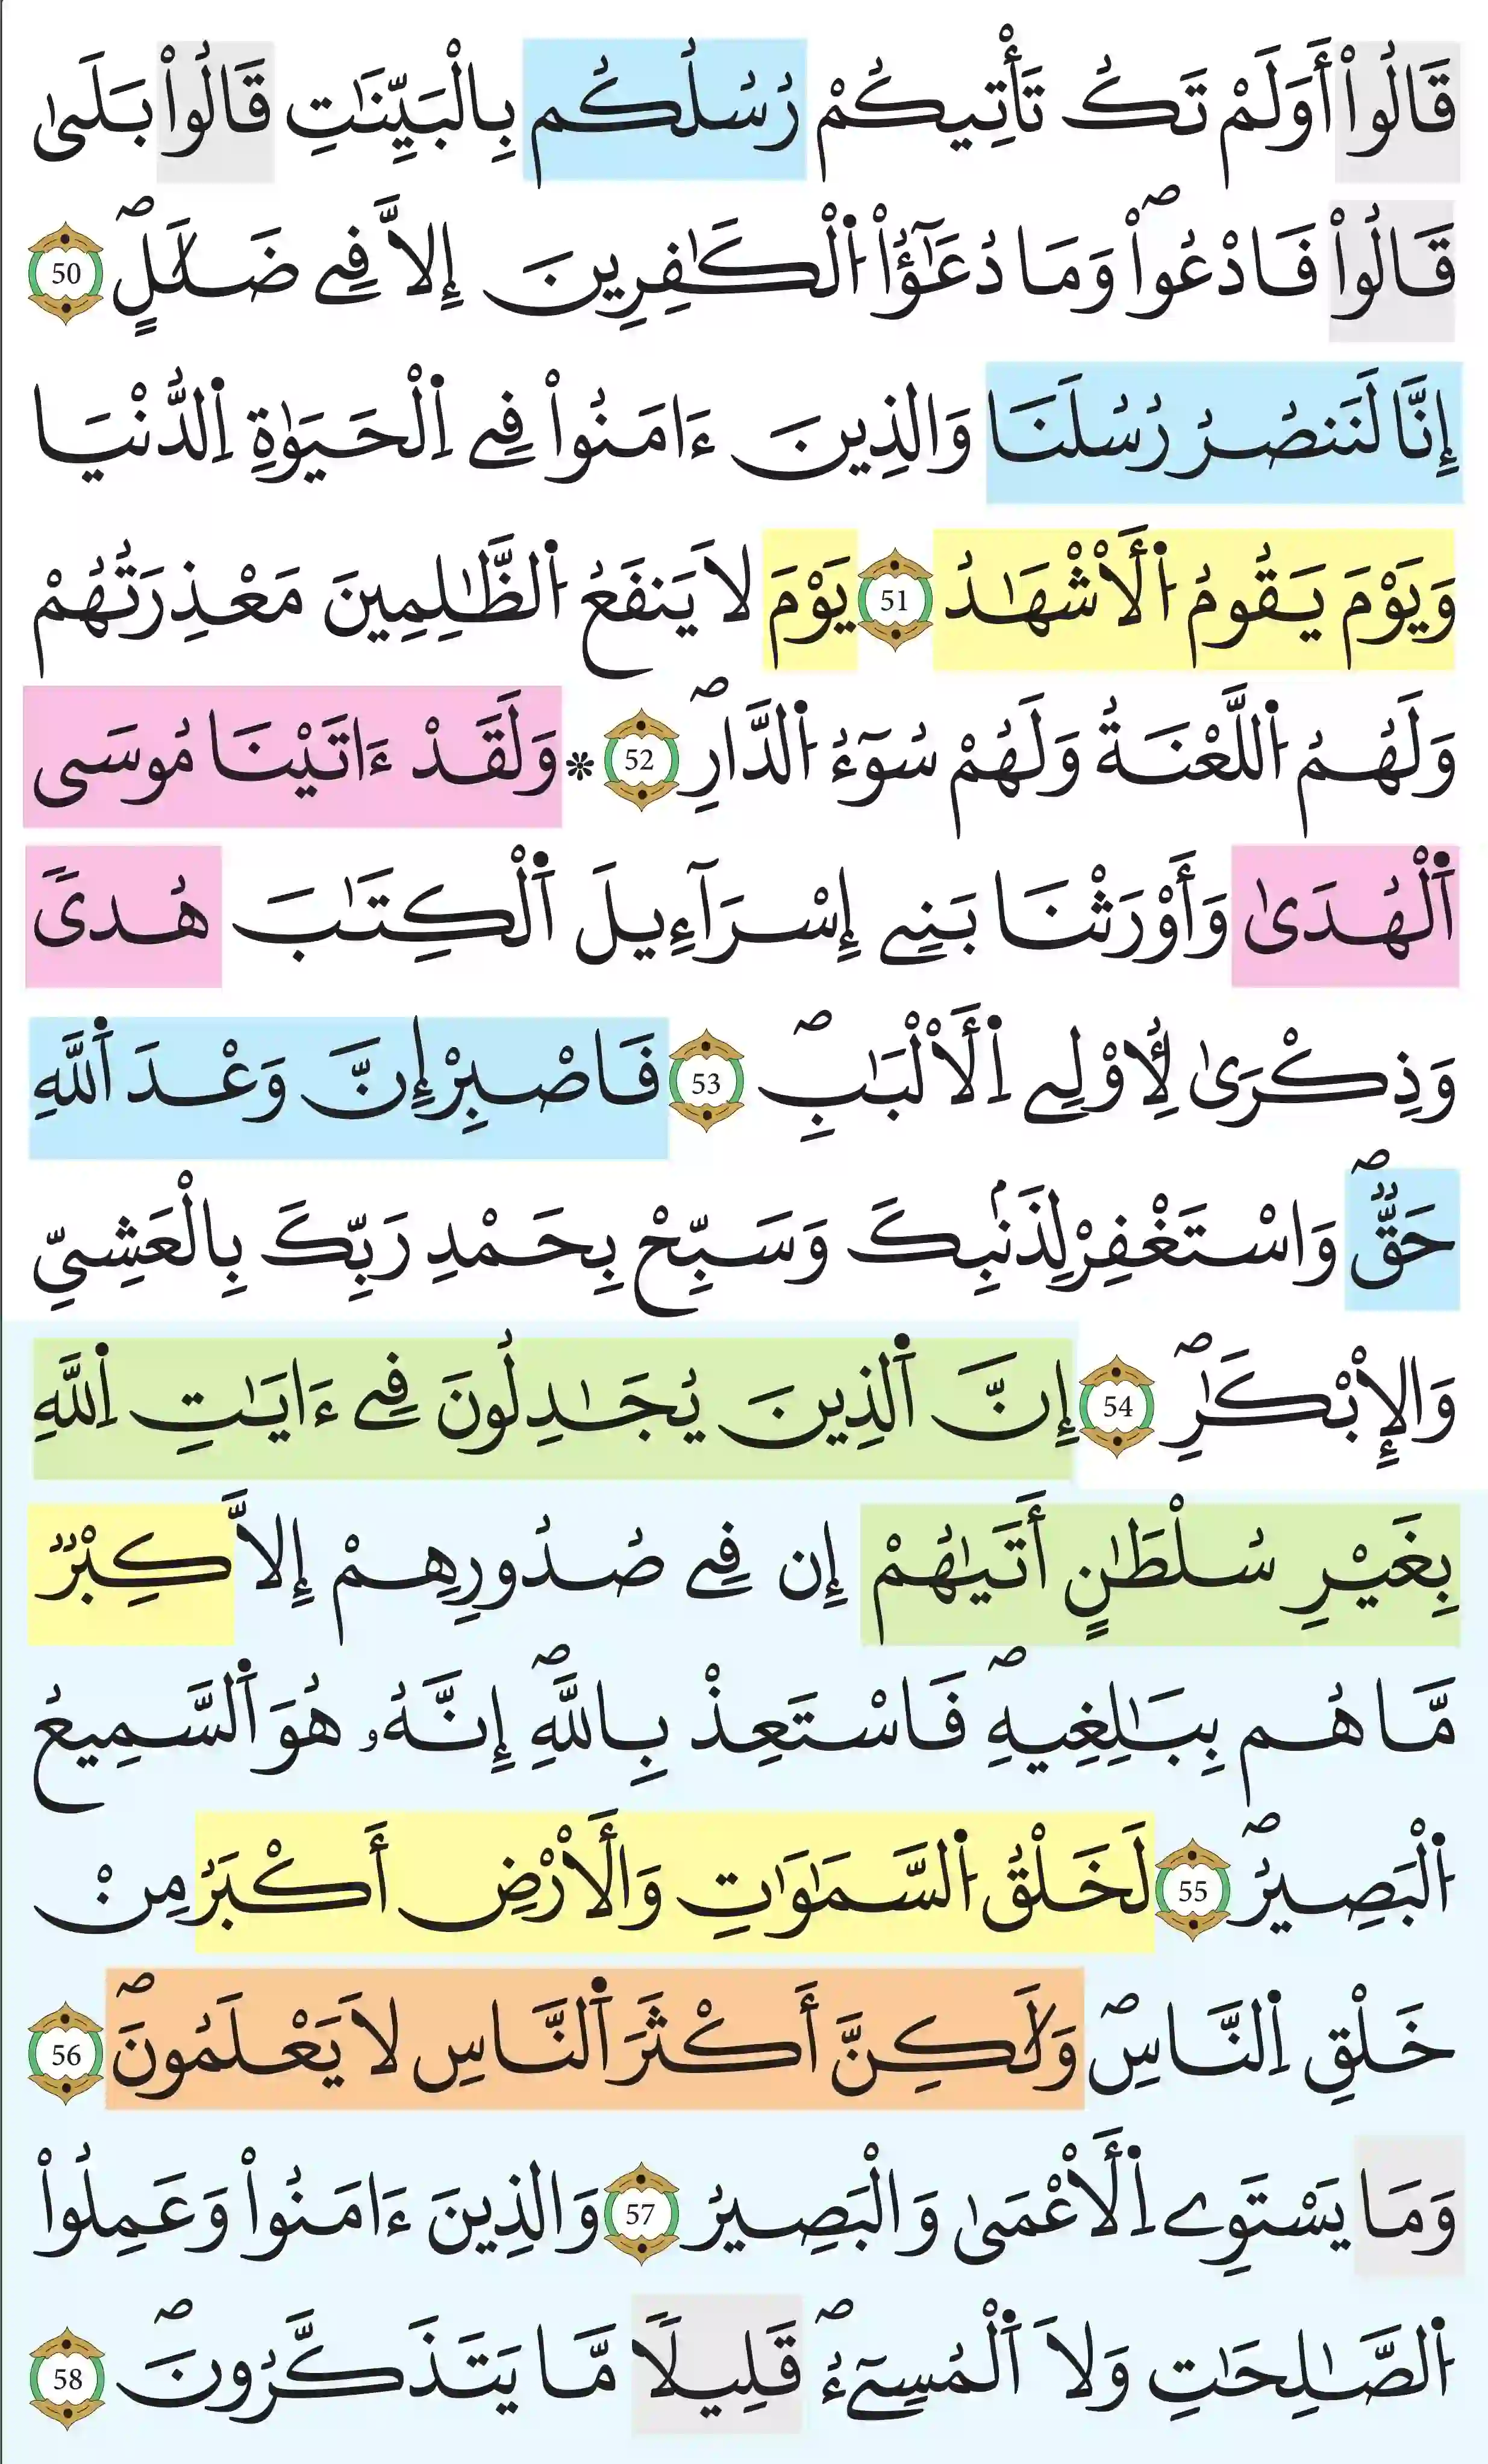 قَالُوٓاْ أَوَلَمْ تَكُ تَأْتِيكُمْ رُسُلُكُم بِالْبَيِّنَٰتِ قَالُواْ بَلَىٰ
قَالُواْ فَادْعُواْۖ وَمَا دُعَٰٓؤُاْ اُ۬لْكَٰفِرِينَ إِلَّا فِے ضَلَٰلٍۖ 50
إِنَّا لَنَنصُرُ رُسُلَنَا وَالذِينَ ءَامَنُواْ فِے اِ۬لْحَيَوٰةِ اِ۬لدُّنْيَا
وَيَوْمَ يَقُومُ اُ۬لْأَشْهَٰدُ 51 يَوْمَ لَا يَنفَعُ اُ۬لظَّٰلِمِينَ مَعْذِرَتُهُمْ
وَلَهُمُ اُ۬للَّعْنَةُ وَلَهُمْ سُوٓءُ اُ۬لدَّارِۖ 52 * وَلَقَدْ ءَاتَيْنَا مُوسَى
اَ۬لْهُدَىٰ وَأَوْرَثْنَا بَنِے إِسْرَآءِيلَ اَ۬لْكِتَٰبَ هُدىٗ
وَذِكْرَىٰ لِأُوْلِے اِ۬لْأَلْبَٰبِۖ 53 فَاصْبِرْ إِنَّ وَعْدَ اَ۬للَّهِ
حَقّٞۖ وَاسْتَغْفِرْ لِذَنۢبِكَ وَسَبِّحْ بِحَمْدِ رَبِّكَ بِالْعَشِيِّ
وَالْإِبْكَٰرِۖ 54 إِنَّ اَ۬لذِينَ يُجَٰدِلُونَ فِے ءَايَٰتِ اِ۬للَّهِ
بِغَيْرِ سُلْطَٰنٍ أَتَيٰهُمْ إِن فِے صُدُورِهِمْ إِلَّا كِبْرٞ
مَّا هُم بِبَٰلِغِيهِۖ فَاسْتَعِذْ بِاللَّهِۖ إِنَّهُۥ هُوَ اَ۬لسَّمِيعُ
اُ۬لْبَصِيرُۖ 55 لَخَلْقُ اُ۬لسَّمَٰوَٰتِ وَالْأَرْضِ أَكْبَرُ مِنْ
خَلْقِ اِ۬لنَّاسِۖ وَلَٰكِنَّ أَكْثَرَ اَ۬لنَّاسِ لَا يَعْلَمُونَۖ 56
وَمَا يَسْتَوِے اِ۬لْأَعْمَىٰ وَالْبَصِيرُ 57 وَالذِينَ ءَامَنُواْ وَعَمِلُواْ
اُ۬لصَّٰلِحَٰتِ وَلَا اَ۬لْمُسِےٓءُۖ قَلِيلاٗ مَّا يَتَذَكَّرُونَۖ 58